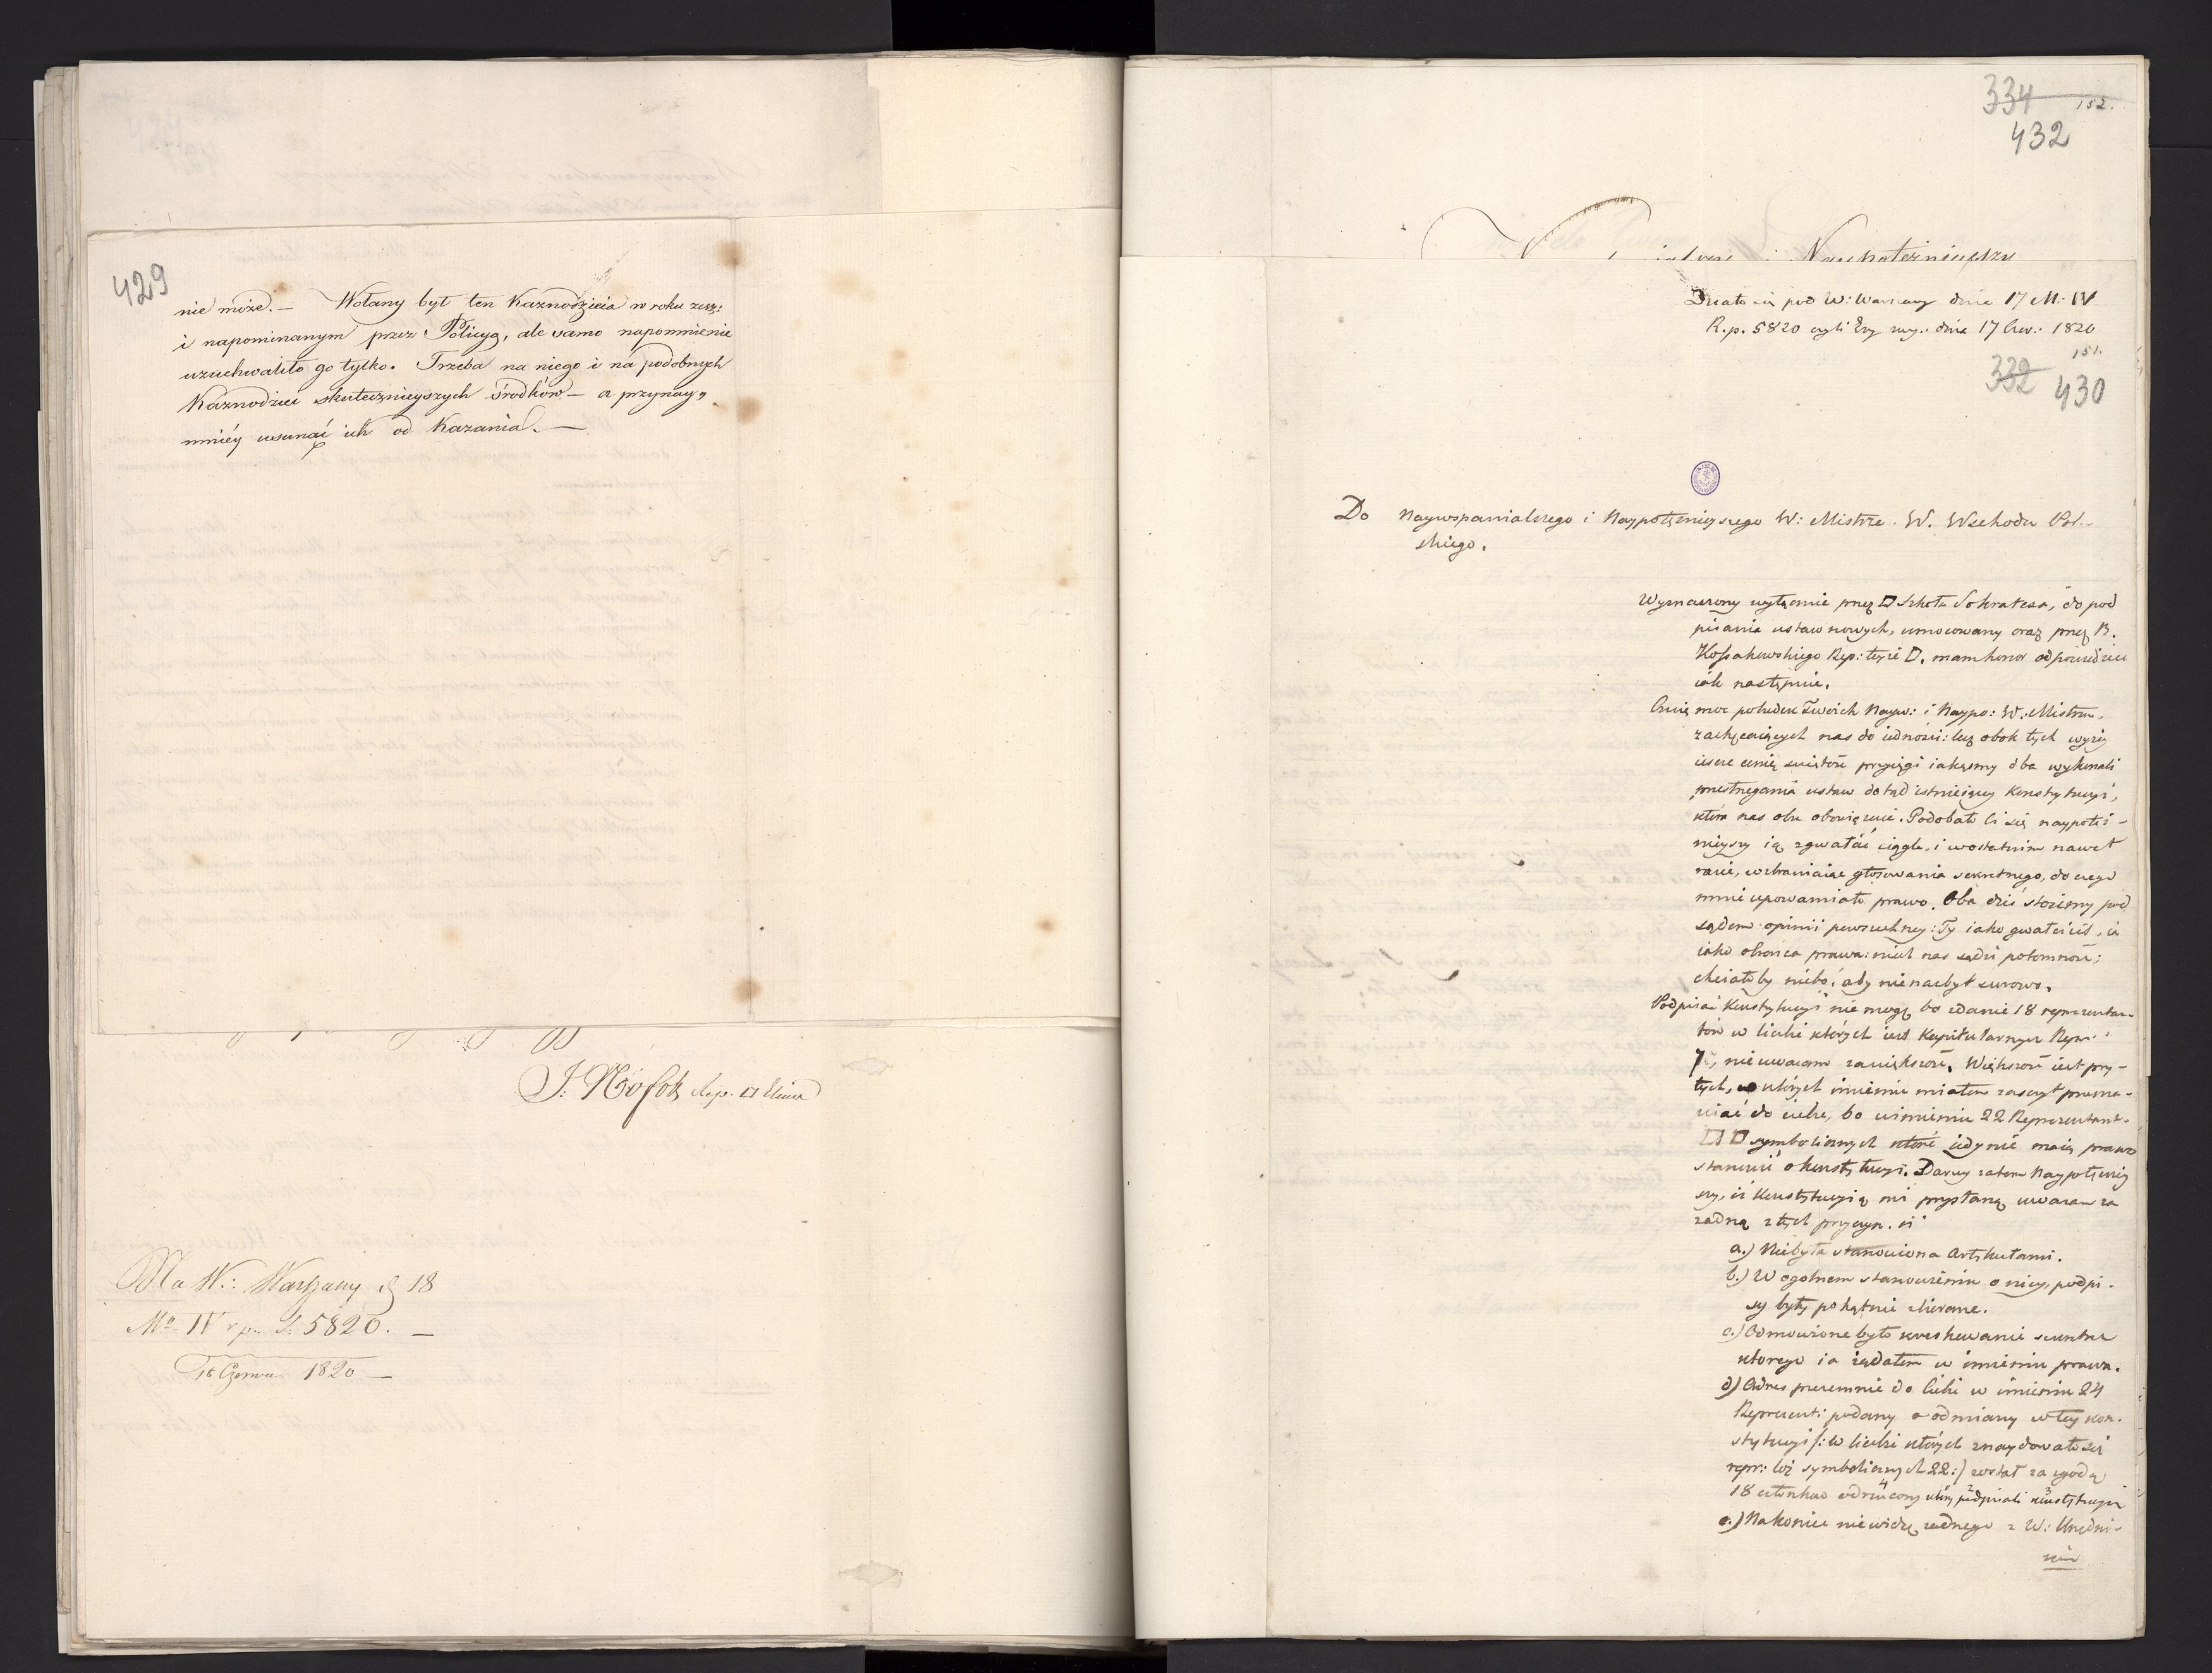 429
nie może. — Wołany był ten Kaznodzieia w roku zesz:
i napominanym przez Policyą, ale samo napomnienie
uzuchwaliło go tylko. Trzeba na niego i na podobnych
Kaznodziei skutecznieyszych środków — a przynay„
mniéy usunąć ich od Kazania. —
J: Rep. □ Eleusis
Na W.: Warszawy d 18
Mca IV r p. S: 5820. —
18 Czerwca 1820 —
334 152.
432
Naypotężnieyszy
Działo się pod W: Warszawy dnia 17 M: IV
R.p. 5820 czyli Ery zwy.: dnia 17 Czer.: 1820
151.
332 430
Do Naywspanialszego i Naypotężnieyszego W: Mistrza W. Wschodu Pol-
skiego.
Wyznaczony wyłącznie przez □ Szkoła Sokratesa, do pod
pisania ustaw nowych, umocowany oraz przez B.
Kossakowskiego Rep: teyże □, mam honor odpowiedzieć
iak następuie.
Czuię moc pobudek Twoich Nayw: i Naypo: W: Mistrzu,
zachęcaiących nas do iedności: lecz obok tych wyżey
ieszcze cenię świętość przysięgi iakąśmy oba wykonali
przestrzegania ustaw dotąd istnieiącey Konstytucyi,
która nas obu obowięzuie. Podobało Ci się naypotęż-
nieyszy ią zgwałcić ciągle, i w ostatnim nawet
razie, wzbraniaiąc głosowania sekretnego, do czego
mnie upoważniało prawo. Oba dziś stoiemy pod
sądem opinii powszechney: Ty iako gwałciciel, ia
iako obrońca prawa: niech nas sądzi potomność;
chciałoby niebo, aby nie nazbyt surowo.
Podpisać Konstytucyi nie mogę, bo zdanie 18 reprezentan-
tów w liczbie których iest Kapitularnych Repr:
7, nie uważam za większość. Większość iest przy-
tych, w których imieniu miałem zaszczyt przema-
wiać do ciebie, bo w imieniu 22 Reprezentant.
□ □ symbolicznych które iedynie maią prawo
stanowić o konstytucyi. Daruy zatem Naypotężniey
szy, iż Konstytucyią mi przysłaną uważam za
żadną z tych przyczyn. iż
a.) Niebyła stanowiona Artykułami.
b.) W ogólnem stanowieniu o niey, podpi-
sy były pokątnie zbierane.
c.) Odmówione było kreskowanie sekretne
którego ia żądałem w imieniu prawa.
d) Adres przezemnie do Ciebie w imieniu 24
Reprezent: podany o odmiany w tey kon-
stytucyi /: w liczbie których znaydowało się
repr: Lóż symbolicznych 22:/ został za zgodą
18 członków odrzucony którzy podpisali konstytucyią
e.) Nakoniec nie widzę żadnego z W: Urzędni-
ków